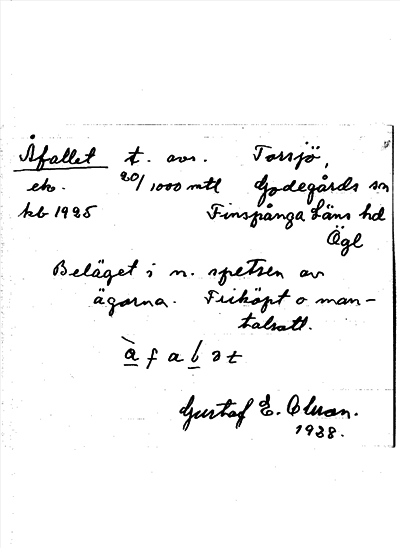 Åfallet t. avs. Torsjö,
eto. 20/1000 mtl Godegårds sn
kb 1925 Finspånga Läns hd
Ögl
Beläget i n. spetsen av
ägorna. Friköpt o man-
talsatt.
à f a b ə t
Gustaf E. Olsson.
1938.